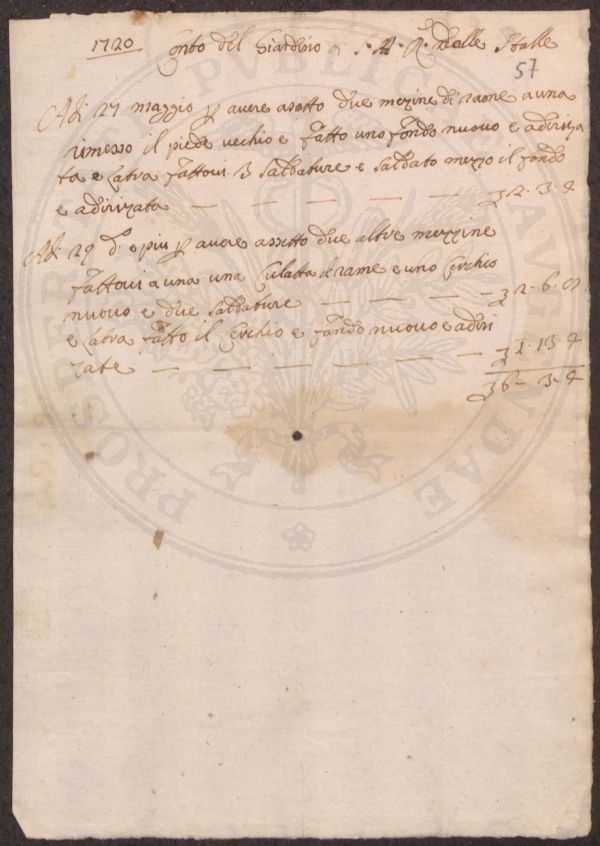 1720 Conto del Giardino a S. A. R. dalle Stalle
57
Adi 27 maggio p avere asetto due mezine di rame a una
rimesso il piede vechio e fatto uno fondo nuovo e adiriza
ta e l'atra fattovi 3 saldature e saldato mezzo il fondo
e adirizata — — — — — — 2.3.4
Adi 29 d.o e piu p avere assetto due altre mezzine
fattovi a una una culatta d rame e uno cerchio
nuovo e due saldature — — — — 2.6.8
e l'atra fatto il cerchio e fondo nuovo e adiri
zate — — — — — — — 1.13.4
6-3-4
PROSPERITATI PUBLICAE AUGENDAE